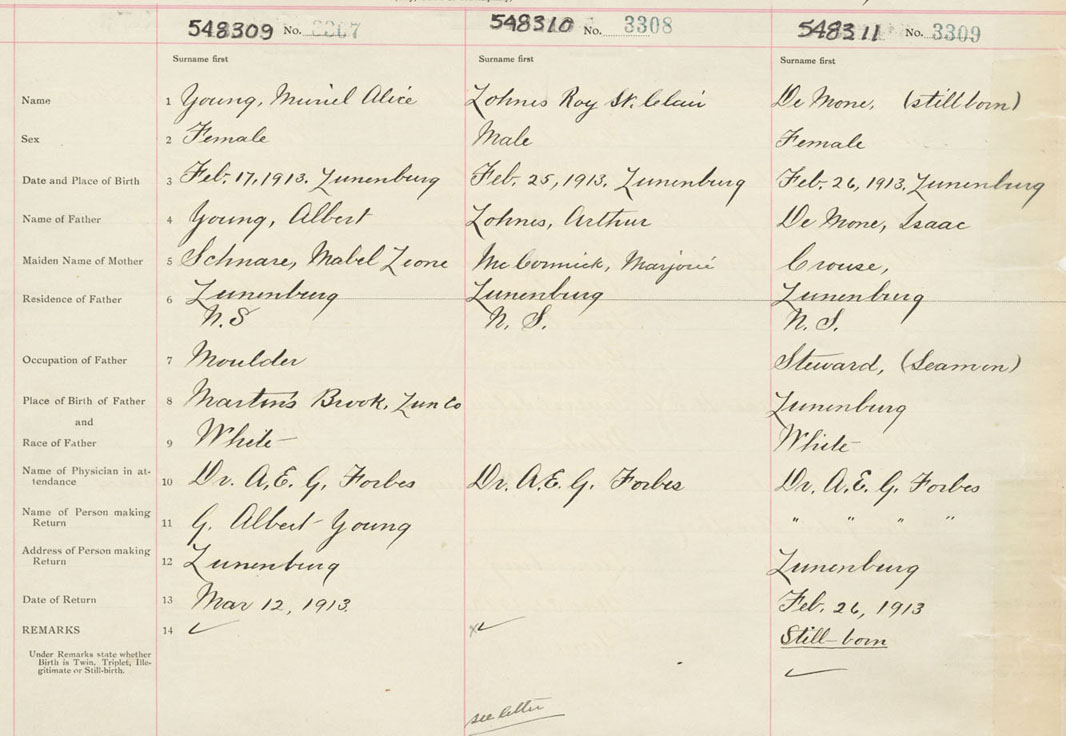 548309 No. 3307 548310 No. 3308 548311 No. 3309
Surname first Surname first Surname first
Name 1 Young, Muriel Alice Zohnes Roy St. Clair De Mone, (stillborn)
Sex 2 Female Male Female
Date and Place of Birth 3 Feb. 17, 1913. Lunenburg Feb. 25, 1913. Lunenburg Feb. 26, 1913. Lunenburg
Name of Father 4 Young, Albert Zohnes, Arthur De Mone, Isaac
Maiden Name of Mother 5 Schnare, Mabel Leone McCormick, Marjorie Crouse,
Residence of Father 6 Lunenburg Lunenburg Lunenburg
N.S N. S. N. S.
Occupation of Father 7 Moulder Steward, (Seamen)
Place of Birth of Father 8 Martins Brook, Lun Co Lunenburg
and
Race of Father 9 White White
Name of Physician in at-
tendance 10 Dr. A. E. G. Forbes Dr. A. E. G. Forbes Dr. A. E. G. Forbes
Name of Person making
Return 11 G. Albert Young " " " "
Address of Person making
Return 12 Lunenburg Lunenburg
Date of Return 13 Mar 12, 1913. Feb. 26, 1913
REMARKS 14 ✓ x✓ Still-born
Under Remarks state whether
Birth is Twin, Triplet, Ille-
gitimate or Still-birth. ✓
see letter